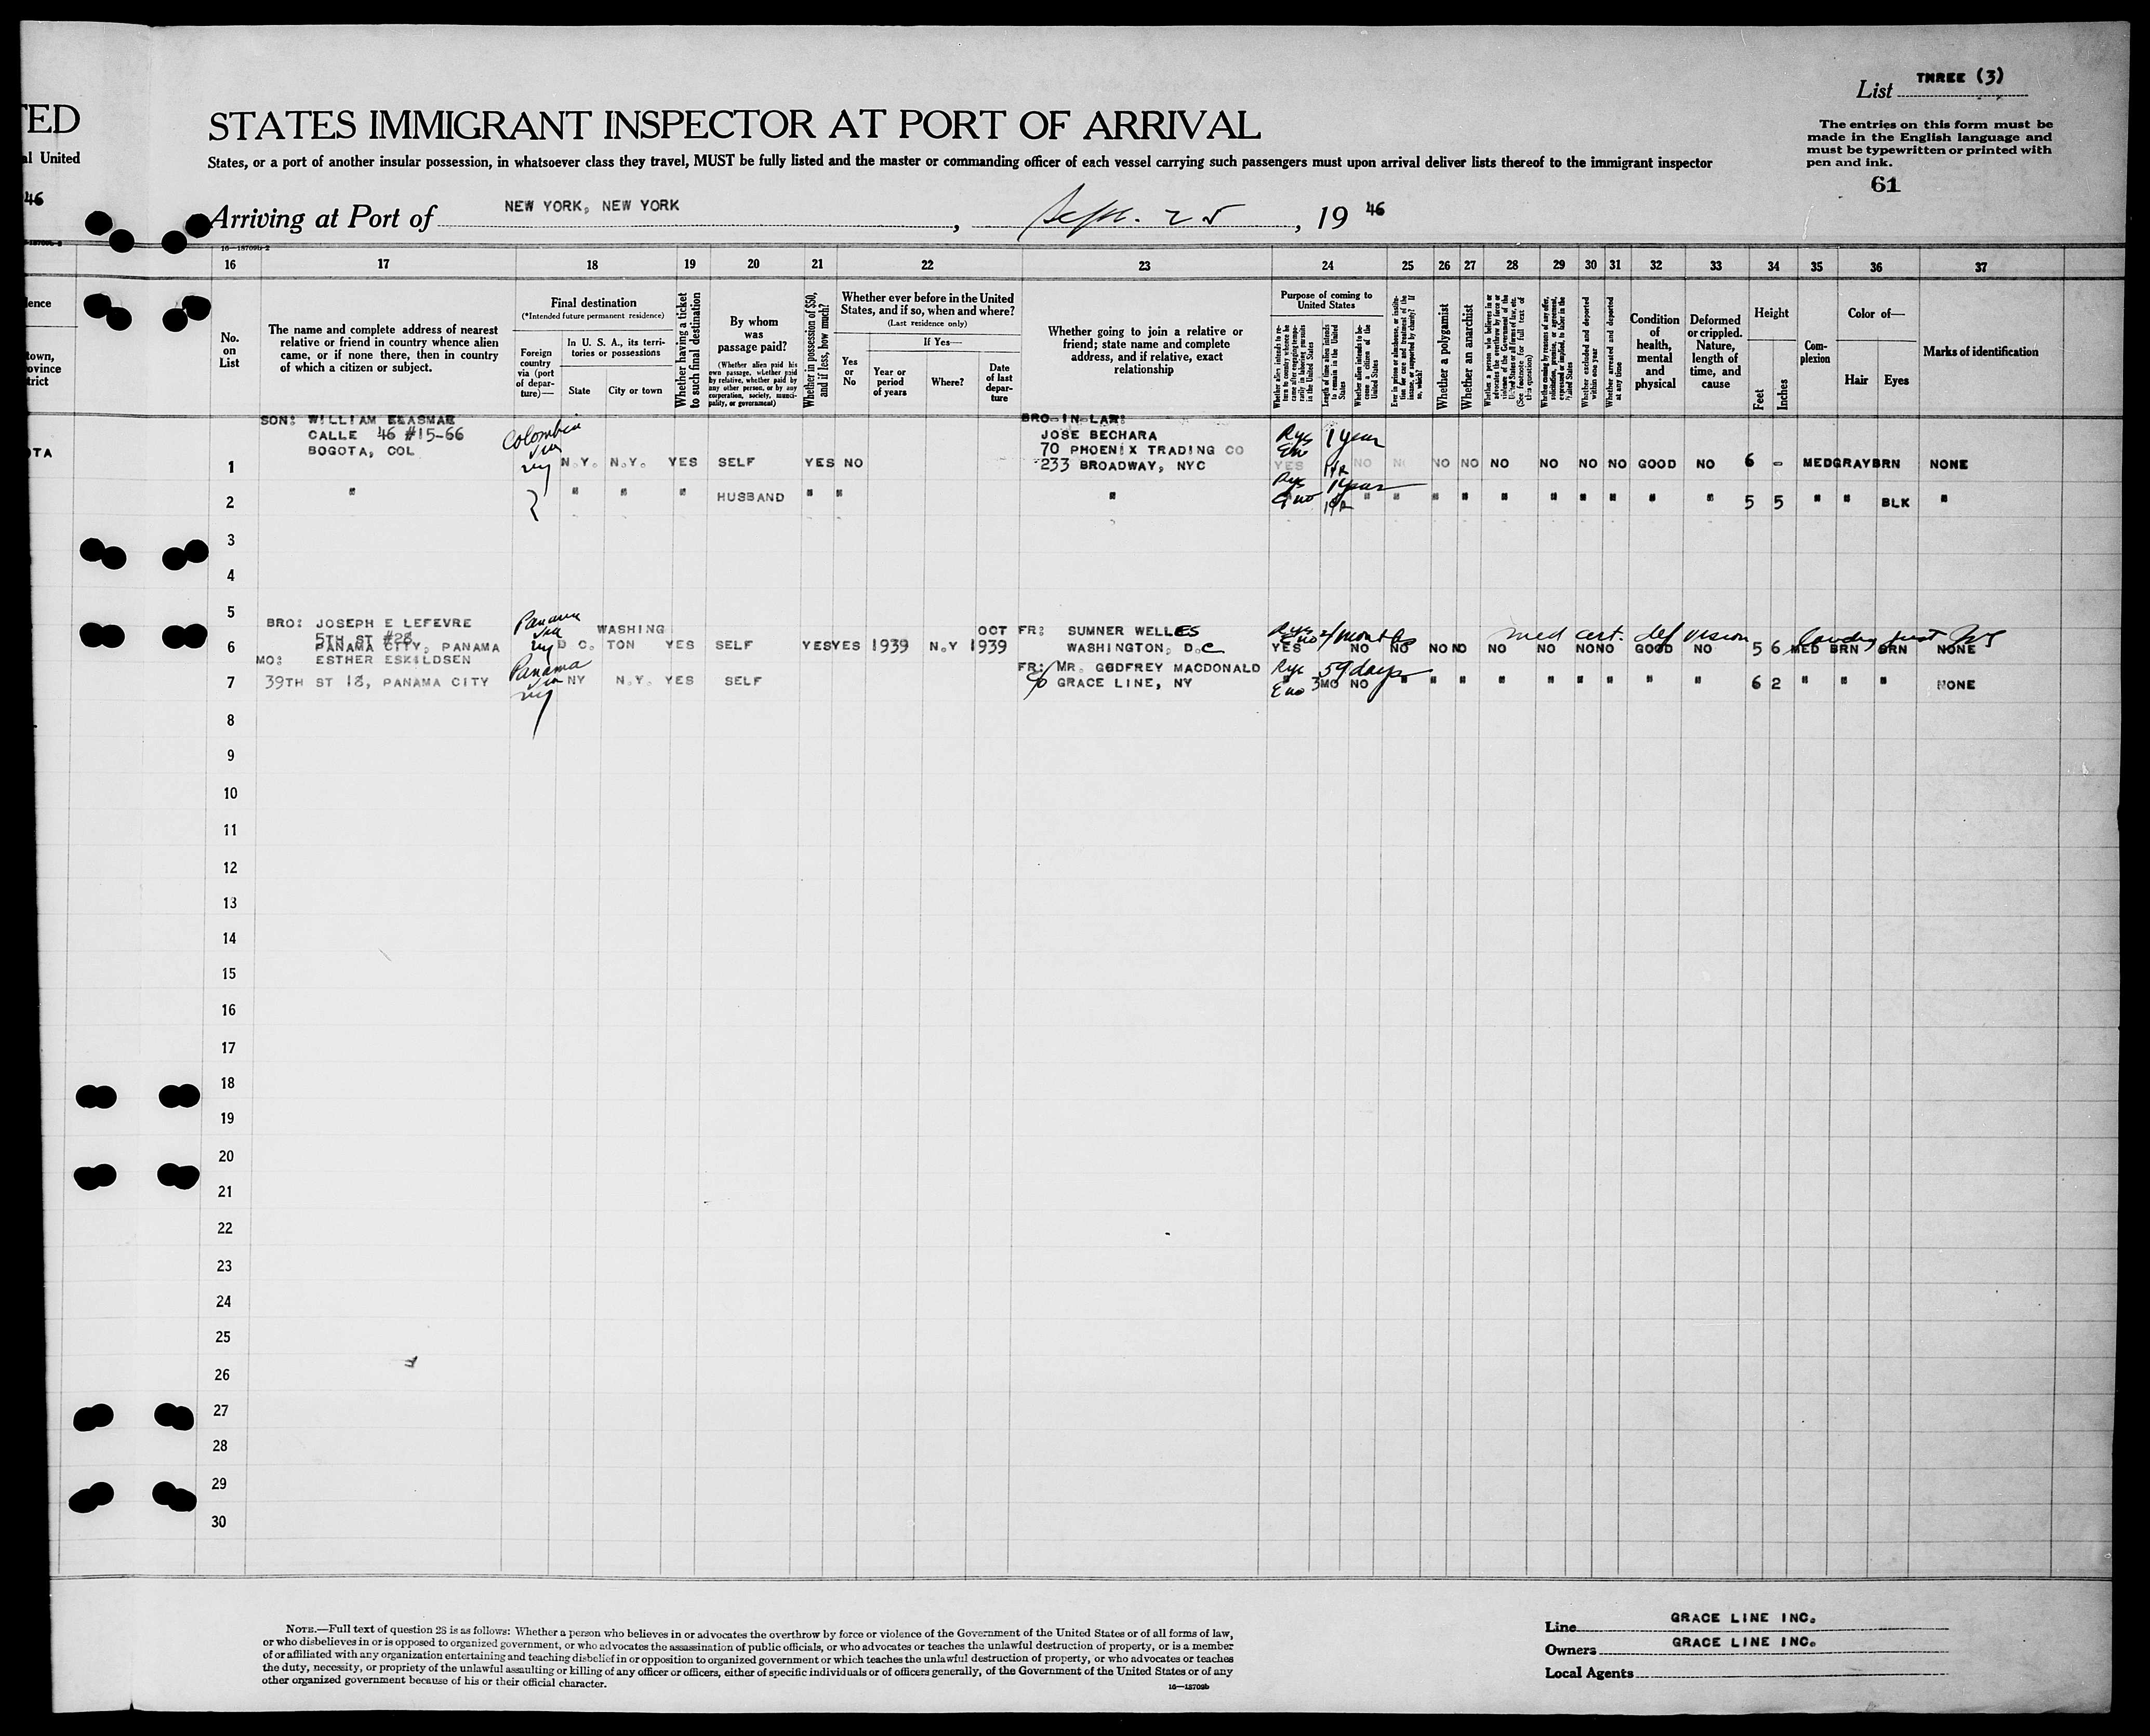 TED
al United
46
List THREE (3)
STATES IMMIGRANT INSPECTOR AT PORT OF ARRIVAL
States, or a port of another insular possession, in whatsoever class they travel, MUST be fully listed and the master or commanding officer of each vessel carrying such passengers must upon arrival deliver lists thereof to the immigrant inspector
The entries on this form must be
made in the English language and
must be typewritten or printed with
pen and ink.
61
Arriving at Port of NEW YORK, NEW YORK, Sept. 25, 19 46
16—18709b-2
16 17 18 19 20 21 22 23 24 25 26 27 28 29 30 31 32 33 34 35 36 37
ence
town,
ovince
trict
No.
on
List
The name and complete address of nearest
relative or friend in country whence alien
came, or if none there, then in country
of which a citizen or subject.
Final destination
(*Intended future permanent residence)
Foreign
country
via (port
of depar-
ture)—
In U. S. A., its terri-
tories or possessions
State
City or town
Whether having a ticket
to such final destination
By whom
was
passage paid?
(Whether alien paid his
own passage, whether paid
by relative, whether paid by
any other person, or by any
corporation, society, munici-
pality, or government)
Whether in possession of $50,
and if less, how much?
Whether ever before in the United
States, and if so, when and where?
(Last residence only)
Yes
or
No
If Yes—
Year or
period
of years
Where?
Date
of last
depar-
ture
Whether going to join a relative or
friend; state name and complete
address, and if relative, exact
relationship
Purpose of coming to
United States
Whether alien intends to re-
turn to country whence he
came after engaging tempo-
rarily in laboring pursuits
in the United States
Length of time alien intends
to remain in the United
States
Whether alien intends to be-
come a citizen of the
United States
Ever in prison or almshouse, or institu-
tion for care and treatment of the
insane, or supported by charity? If
so, which?
Whether a polygamist
Whether an anarchist
Whether a person who believes in or
advocates the overthrow by force or
violence of the Government of the
United States or all forms of law, etc.
(See footnote for full text of
this question)
Whether coming by reason of any offer,
solicitation, promise, or agreement,
expressed or implied, to labor in the
United States
Whether excluded and deported
within one year
Whether arrested and deported
at any time
Condition
of
health,
mental
and
physical
Deformed
or crippled.
Nature,
length of
time, and
cause
Height
Feet
Inches
Com-
plexion
Color of—
Hair
Eyes
Marks of identification
OTA
SON: WILLIAM ELASMAR
CALLE 46 #15-66
BOGOTA, COL
Colombia
via
ny
BRO-IN-LAW:
JOSE BECHARA
70 PHOENIX TRADING CO
233 BROADWAY, NYC
1 year
1 N.Y. N.Y. YES SELF YES NO YES 1YR NO NO NO NO NO NO NO NO GOOD NO 6 - MED GRAY BRN NONE
1 year
2 " " " " HUSBAND " " " 1YR " " " " " " " " " " 5 5 " " BLK "
3
4
5
BRO: JOSEPH E LEFEVRE
5TH ST #28
PANAMA CITY, PANAMA
Panama
via
ny
WASHING
OCT
FR: SUMNER WELLES
WASHINGTON, D.C
months
med cert. def vision
6 D C. TON YES SELF YES YES 1939 N.Y 1939 YES NO NO NO NO NO NO NO NO GOOD NO 5 6 MED BRN BRN NONE
MO: ESTHER ESKILDSEN
39TH ST 18, PANAMA CITY
Panama
via
ny
FR: MR. GODFREY MACDONALD
c/o GRACE LINE, NY
59 days
7 NY N.Y. YES SELF " 3MO NO " " " " " " " " " 6 2 " " " NONE
8
9
10
11
12
13
14
15
16
17
18
19
20
21
22
23
24
25
26
27
28
29
30
NOTE.—Full text of question 28 is as follows: Whether a person who believes in or advocates the overthrow by force or violence of the Government of the United States or of all forms of law,
or who disbelieves in or is opposed to organized government, or who advocates the assassination of public officials, or who advocates or teaches the unlawful destruction of property, or is a member
of or affiliated with any organization entertaining and teaching disbelief in or opposition to organized government or which teaches the unlawful destruction of property, or who advocates or teaches
the duty, necessity, or propriety of the unlawful assaulting or killing of any officer or officers, either of specific individuals or of officers generally, of the Government of the United States or of any
other organized government because of his or their official character.
16—18709b
Line GRACE LINE INC.
Owners GRACE LINE INC.
Local Agents